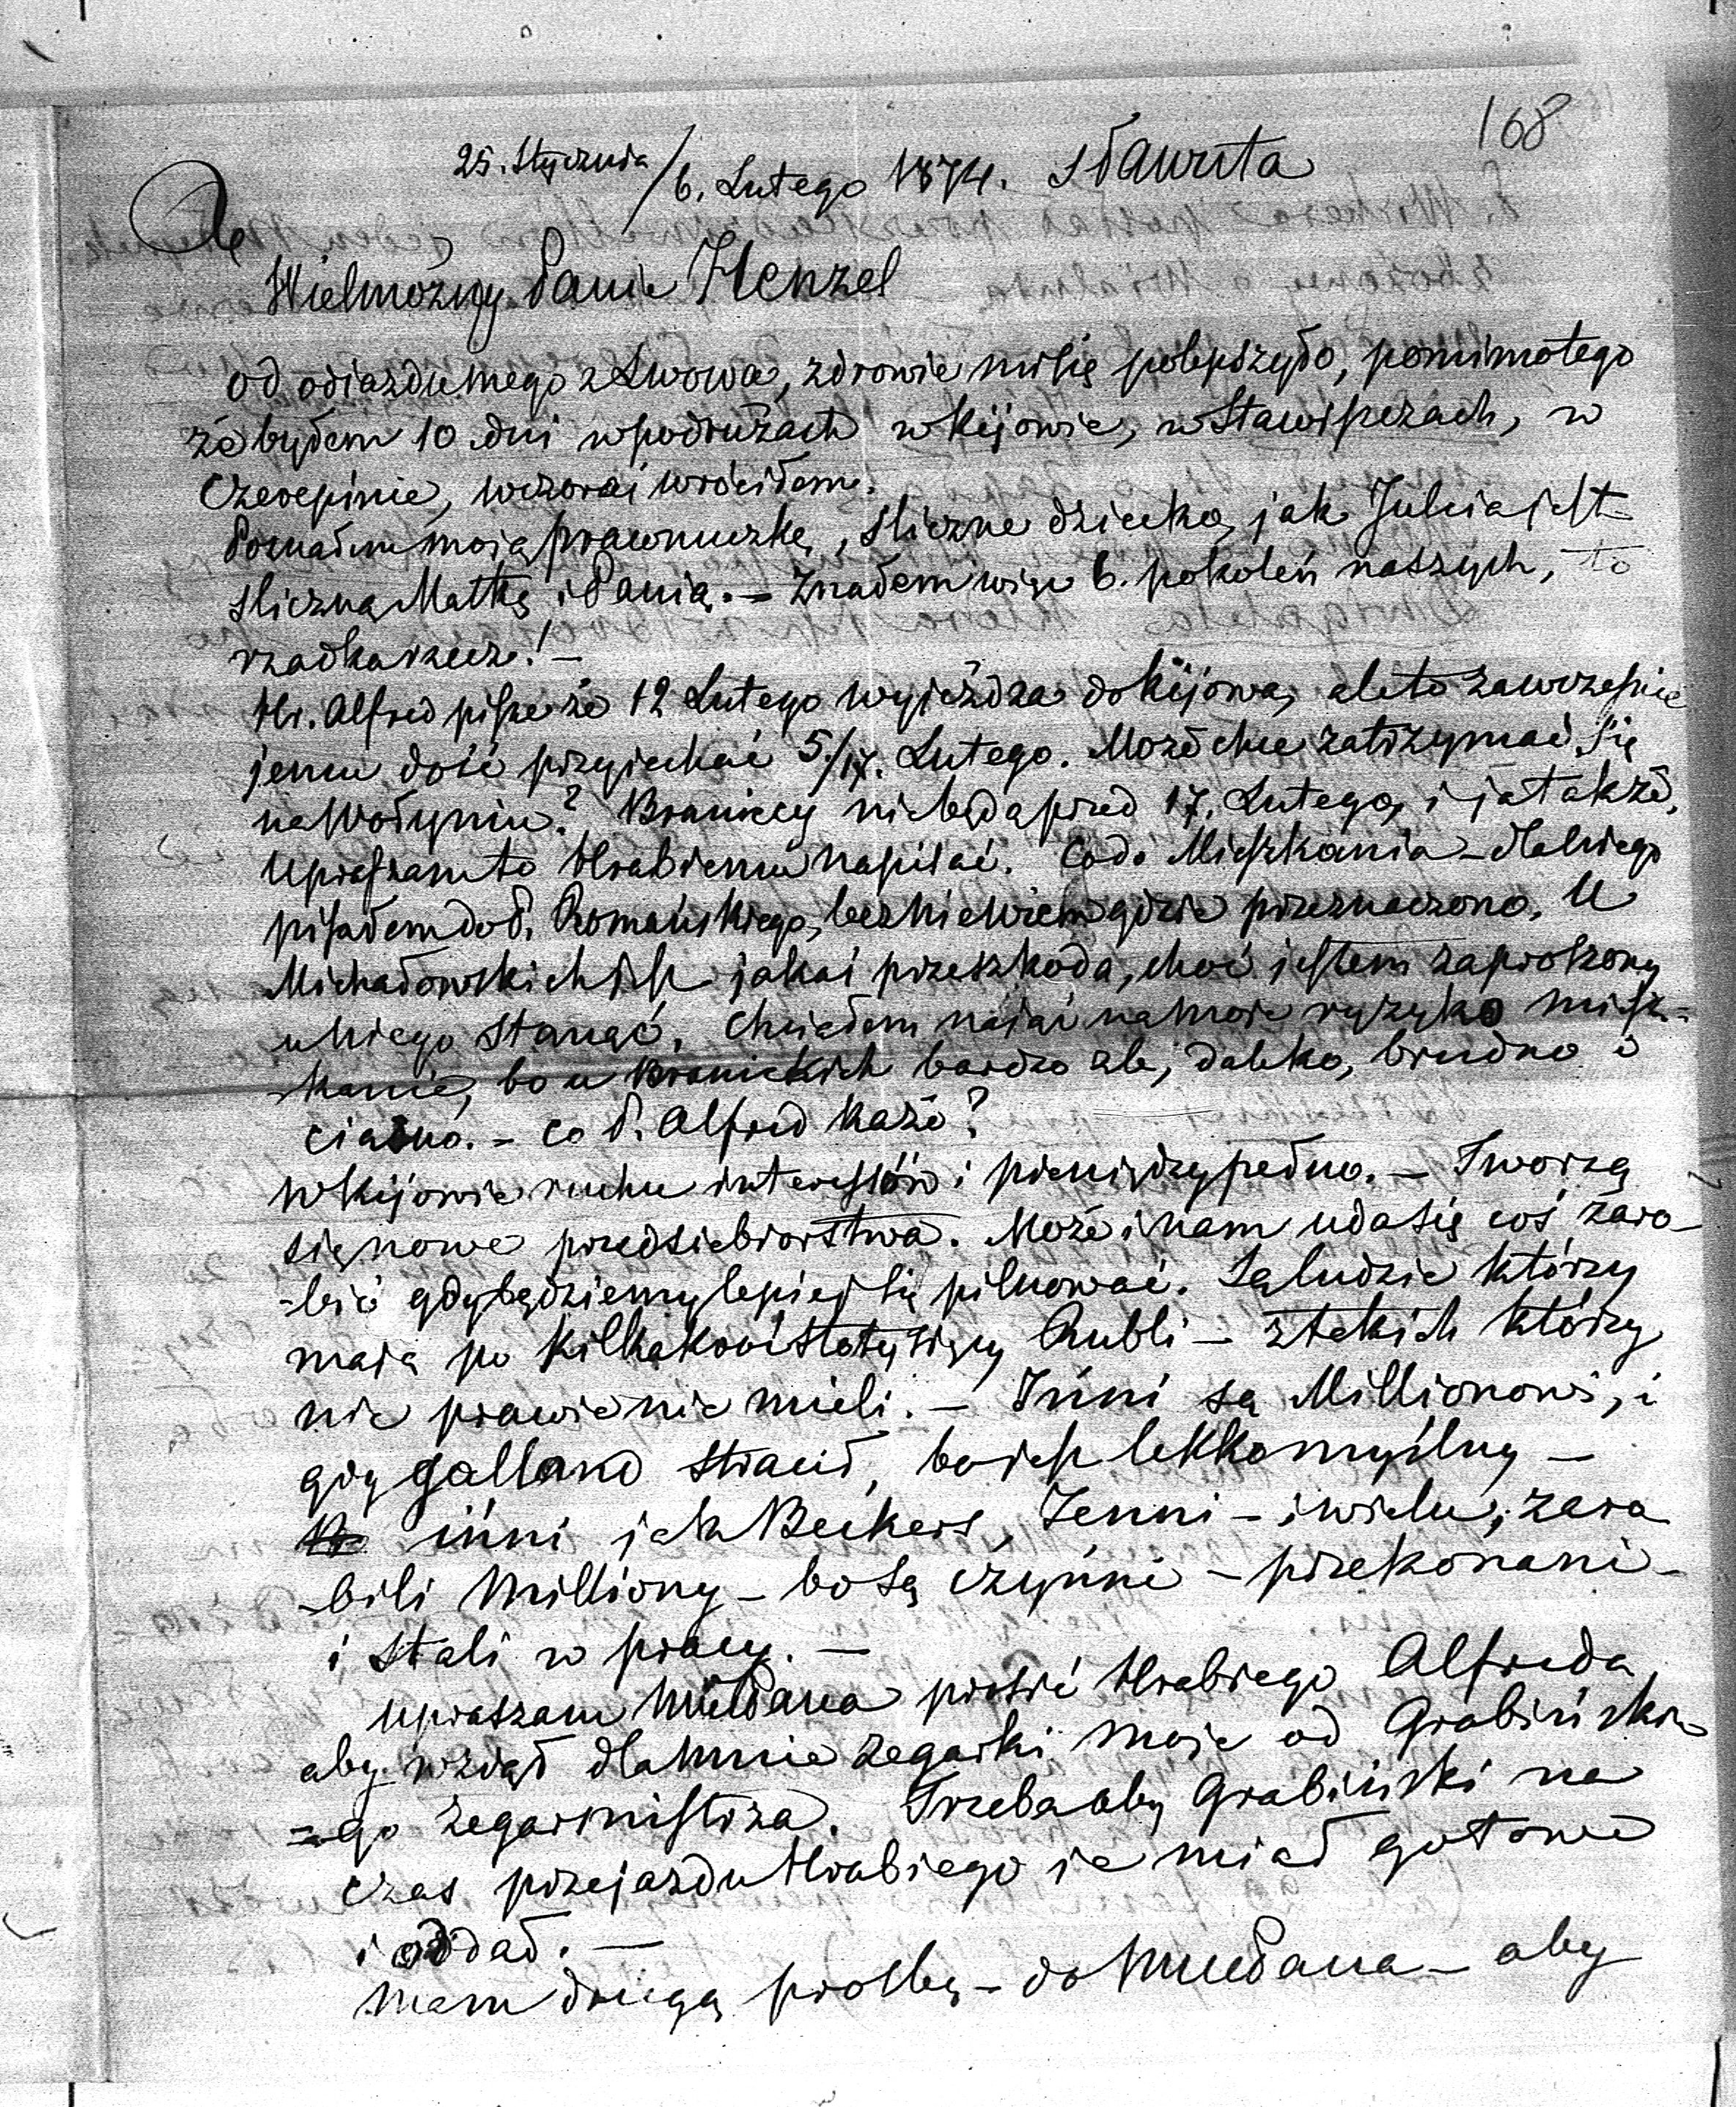 168
25. Stycznia/6. Lutego 1874. Sławuta
Wielmożny Panie Henzel
od odiazdu mego z Lwowa, zdrowie mi się polepszyło, pomimo tego
że byłem 10 dni w podróżach w Kijowie, w Stawiszczach, w
Czerepinie, wczorai wróciłem.
Poznałem moią prawnuczkę, śliczne dziecko, jak Julcia jest
śliczną Matką i Panią. – Znałem więc 6. pokoleń naszych, to
rzadka rzecz! –
Hr. Alfred pisze że 12 Lutego wyjeżdza do Kijowa, ale to zawcześnie
jemu dość przyiechać 5/17. Lutego. Może chce zatrzymać się
na Wołyniu? Braniccy nie będą przed 17. Lutego, i ja także,
Upraszam to Hrabiemu napisać. Co do Mieszkania – dla niego
pisałem do P. Romańskiego, lecz nie wiem gdzie przeznaczono. U
Michałowskich jest jakaś przeszkoda, choć jestem zaproszony
u niego stanąć. Chciałem nająć na moje ryzyko miesz=
kanie, bo u Branickich bardzo źle, daleko, brudno i
ciasno. – co P. Alfred każe?
w Kijowie ruchu interessów i pieniędzy pełno. – Tworzą
się nowe przedsiebiorstwa. Może i nam uda się coś zaro–
–bić gdy będziemy lepiej się pilnować. Są ludzie którzy
mają po kilkakroć sto tysięcy Rubli – z takich którzy
nic prawie nie mieli. – Inni są Millionowi, i
gdy Galland stracił, bo jest lekkomyślny –
inni jak Beckers, Jenni – i wielu, zara
–bili Milliony – bo są czynni – przekonani –
i stali w pracy. –
Upraszam WMPana prosić Hrabiego Alfreda,
aby wziął dla mnie zegarki moje od Grabińskie
=go zegarmistrza. Trzeba aby Grabiński na
czas przejazdu Hrabiego je miał gotowe
i oddał. –
Mam drugą prośbę – do WMPana – aby